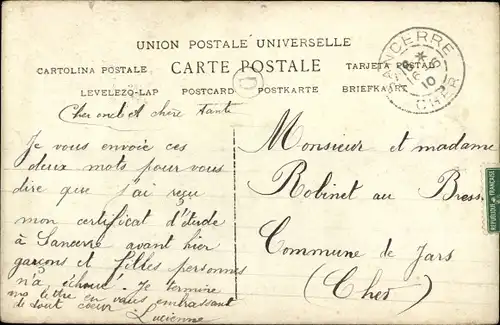 UNION POSTALE UNIVERSELLE
CARTOLINA POSTALE CARTE POSTALE TARJETA POSTAL
LEVELEZO-LAP POSTCARD POSTKARTE BRIEFKAART
SANCERRE
CHER
10
D
Cher oncle et chère tante
Je vous envoie ces
deux mots pour vous
dire que j'ai reçu
mon certificat d'étude
à Sancerre avant hier
garçons et filles personnes
n'a échoué. Je termine
ma lettre en vous embrassant
de tout coeur
Lucienne
Monsieur et madame
Robinet au Bress
Commune de Jars
(Cher)
REPUBLIQUE FRANÇAISE